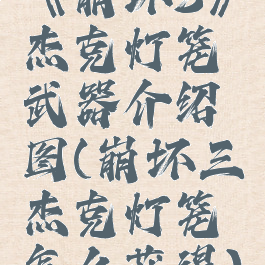 《崩坏3》
杰克灯笼
武器介绍
图(崩坏三
杰克灯笼
怎么获得)